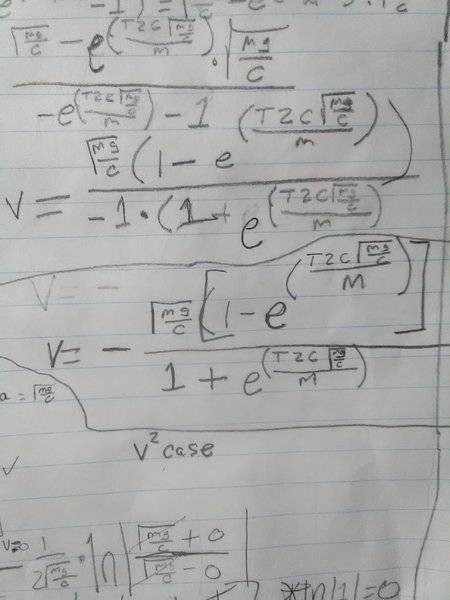 √(mg/c) - e^(T2C√(mg/c)/m) · √(mg/c)
-e^(T2C√(mg/c)/m) - 1
√(mg/c) (1 - e^(T2C√(mg/c)/m))
V = 
-1·(1 + e^(T2C√(mg/c)/m)
V = -
√(mg/c) [1 - e^(T2C√(mg/c)/M)]
V = -
1 + e^(T2C√(mg/c)/M)
a = √(mg/c)
V² case
✓
V=0
1/(2√(mg/c)) · ln |(√(mg/c) + 0)/(√(mg/c) - 0)|
*ln|1|=0